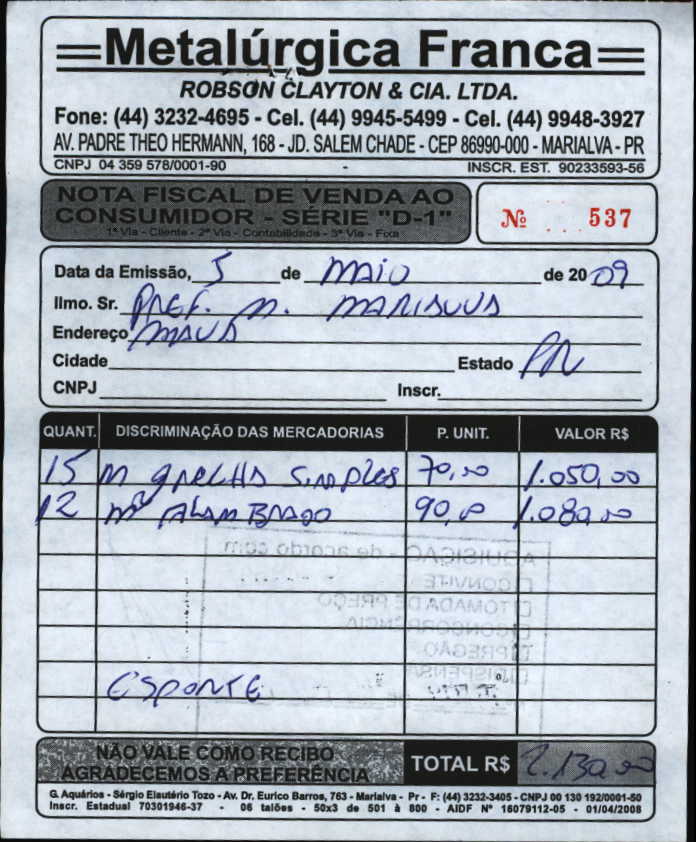 Metalúrgica Franca
ROBSON CLAYTON & CIA. LTDA.
Fone: (44) 3232-4695 - Cel. (44) 9945-5499 - Cel. (44) 9948-3927
AV. PADRE THEO HERMANN, 168 - JD. SALEM CHADE - CEP 86990-000 - MARIALVA - PR
CNPJ 04 359 578/0001-90 - INSCR. EST. 90233593-56
NOTA FISCAL DE VENDA AO
CONSUMIDOR - SÉRIE "D-1"
1ª Via - Cliente - 2ª Via - Contabilidade - 3ª Via - Fixa
Nº 537
Data da Emissão, 5 de MAIO de 2009
Ilmo. Sr. PREF. M. MARIALVA
Endereço
Cidade Estado PR
CNPJ Inscr.
QUANT. DISCRIMINAÇÃO DAS MERCADORIAS P. UNIT. VALOR R$
15 M GRELHA SIMPLES 70,00 1.050,00
12 m² ALAMBRADO 90,00 1.080,00
AQUISIÇÃO - de acordo com
CONVITE
TOMADA DE PREÇO
CONCORRÊNCIA
PREGÃO
DISPENSA
ESPORTE
NÃO VALE COMO RECIBO
AGRADECEMOS A PREFERÊNCIA
TOTAL R$ 2.130,00
G. Aquários - Sérgio Elautério Tozo - Av. Dr. Eurico Barros, 763 - Marialva - Pr - F: (44) 3232-3405 - CNPJ 00 130 192/0001-50
Inscr. Estadual 70301946-37 - 06 talões - 50x3 de 501 à 800 - AIDF Nº 16079112-05 - 01/04/2008